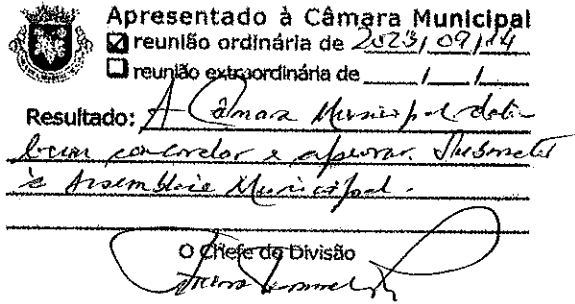 Apresentado à Câmara Municipal
reunião ordinária de 2023/09/14
reunião extraordinária de ___/___/___
Resultado: A Câmara Municipal deli-
berou concordar e aprovar. Submeter
à Assembleia Municipal.
O Chefe de Divisão